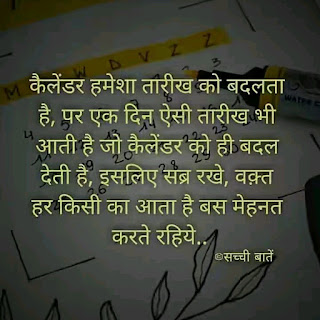 M W D V Z Z
WATER C
कैलेंडर हमेशा तारीख को बदलता
है, पर एक दिन ऐसी तारीख भी
आती है जो कैलेंडर को ही बदल
देती है, इसलिए सब्र रखे, वक़्त
हर किसी का आता है बस मेहनत
करते रहिये..
©सच्ची बातें